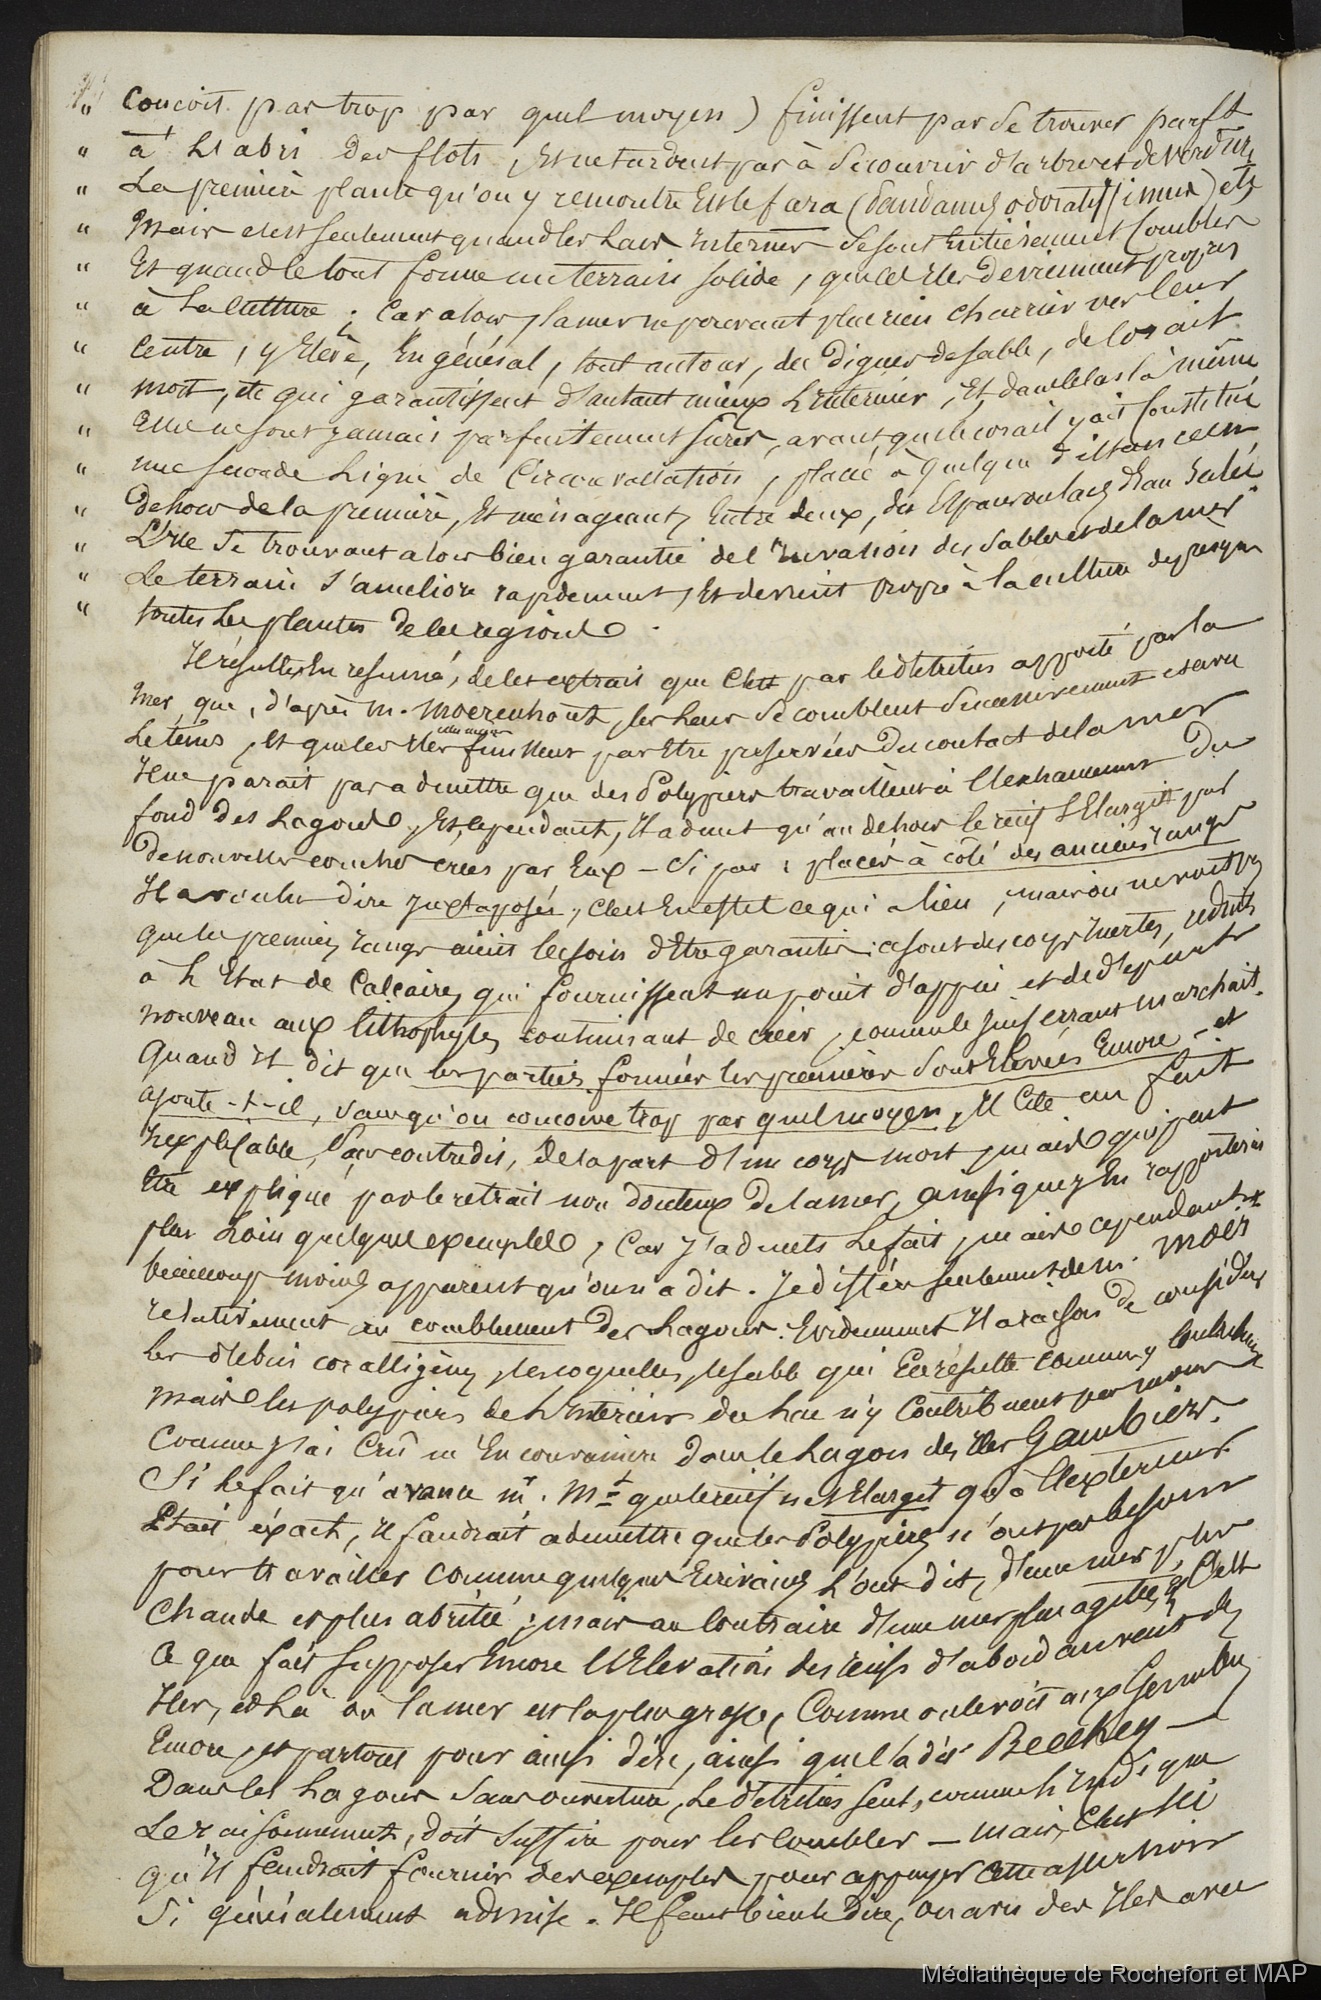 " conçoit pas trop par quel moyen) finissent par se trouver parft
" à l'abri des flots, et ne tardent pas à se couvrir d'arbres et de verdure,
" La première plante qu'on y rencontre est le fara (Pandanus odoratiss/imus) etc
" Mais c'est seulement quand les lacs internes se sont entièrement comblés
" Et quand le tout forme un terrain solide, que ces îles deviennent propres
" à la culture ; Car alors, la mer ne pouvant plus rien charrier vers leur
" Centre, y élève, en général, tout autour, des digues de sable, de corail
" mort, etc qui garantissent d'autant mieux l'intérieur, Et dans ce cas là même
" elles ne sont jamais parfaitement sûres, avant que le corail y ait constitué
" une seconde ligne de circonvallation, placée à quelque distance en
" dehors de la première, Et ménageant, entre deux, des espaces ou lacs d'eau salée
" L'île se trouvant alors bien garantie de l'invasion des sables et de la mer
" Le terrain s'améliore rapidement, Et devient propre à la culture de presque
" toutes les plantes de ces régions.
Il résulte En résumé, de cet extrait que C'est par le détritus apporté par la
Mer que, d'après M. Moerenhout, les lacs se comblent successivement avec
Le tems, Et que les îles finissent par être préservées du contact de la mer
Il ne parait pas admettre que des Polypiers travaillent à l'exhaussement du
fond des Lagons, Et, cependant, Il admet qu'au dehors le récif s'élargit par
de nouvelles couches crées par Eux - Si par : placés à côté des anciens rangs
Il a voulu dire juxtaposés, C'est En effet ce qui a lieu, mais on ne voit pas
que les premiers rangs aient besoin d'être garantis : ce sont des corps inertes, réduits
à l'État de Calcaires, qui fournissent un point d'appui et de départ
nouveau aux lithophytes continuant de créer, comme le juif errant marchait.
Quand Il dit que les parties formées les premières sont élevées Encore - et
ajoute-t-il, sans qu'on conçoive trop par quel moyen, Il Cite un fait
Inexplicable, sans contredit, de la part d'un corps mort, mais qui peut
Etre expliqué par le retrait non douteux de la mer, ainsi que j'en rapporterai
plus Loin quelques exemples ; Car j'admets le fait, mais cependant
beaucoup moins apparent qu'on n'a dit. Je diffère seulement de M. Moer
relativement au comblement des Lagons. Evidemment Il a raison de considérer
les débris coralligènes, les coquilles, le sable qui En résulte comme y contribuant
mais les polypiers de l'Intérieur du lac n'y Contribuent pas moins
Comme j'ai Crû m'En convaincre dans le Lagon des îles Gambier.
Si le fait qu'avance Mr. Mt que le récif n'est élargit qu'à l'extérieur
Etait exact, Il faudrait admettre que les Polypiers n'ont pas besoin
pour travailler comme quelques Ecrivains l'ont dit, d'une mer plus
Chaude et plus abritée ; mais au Contraire d'une mer plus agitée, & C'est
Ce que fait supposer Encore l'Elévation des récifs d'abord au vent des
Iles, et là où la mer est la plus grosse, Comme on le voit aux Gambier
Encore, et partout pour ainsi dire, ainsi que l'a dit Beechey —
Dans les Lagons sans ouverture, Le détritus seul, comme l'Indique
Le raisonnement, doit suffire pour les combler — mais, C'est Ici
qu'Il faudrait fournir des exemples pour appuyer cette assertion
Si généralement admise. Il faut bien le dire, on a vu des Iles avec
Médiathèque de Rochefort et MAP